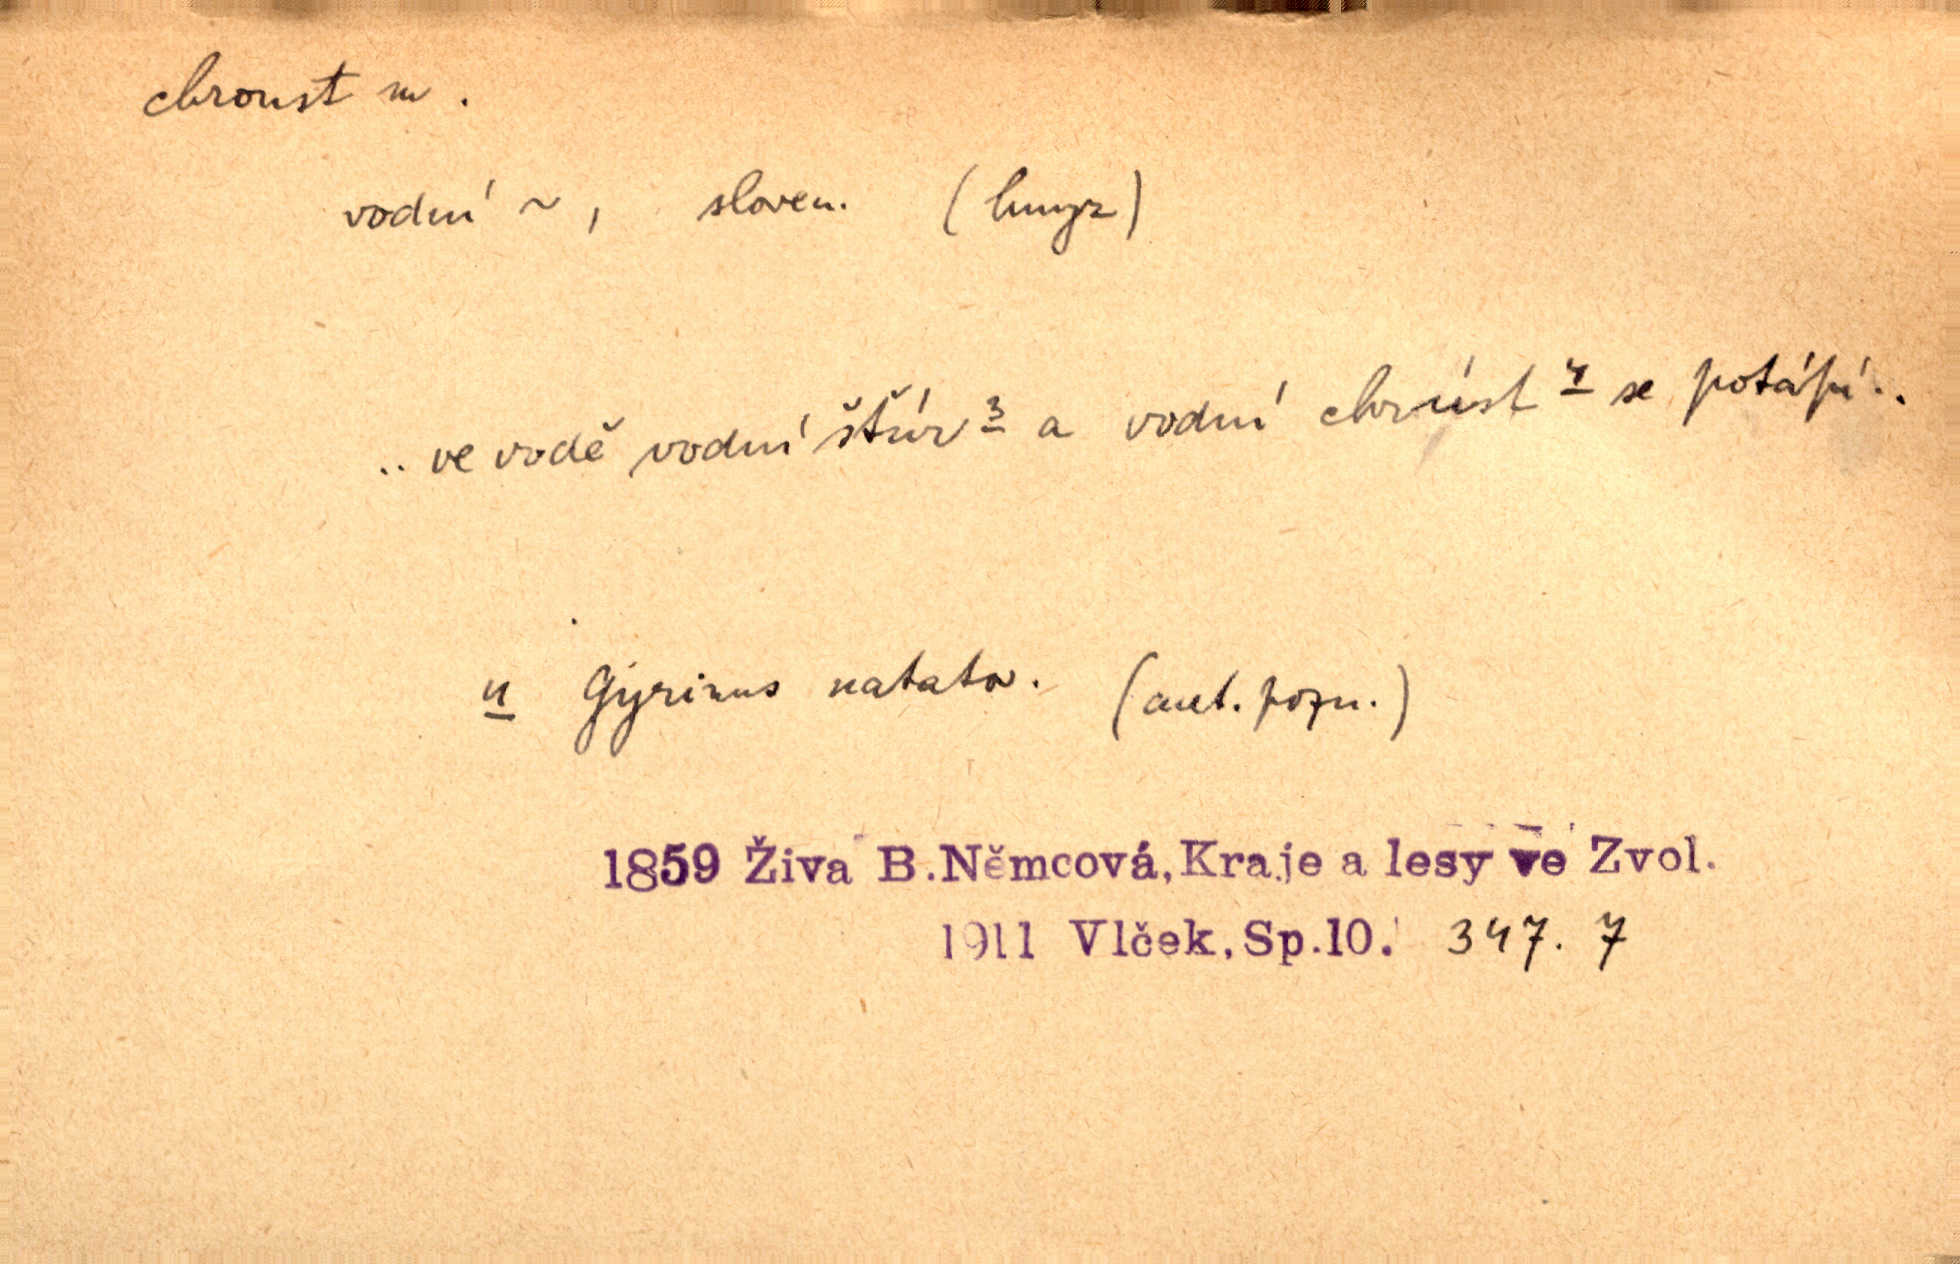 chroust m.
vodní ~, sloven. (hmyz)
.. ve vodě vodní štúr 3 a vodní chrúst 4 se potápí..
4 Gyrinus natator. (aut. pozn.)
1859 Živa B.Němcová, Kraje a lesy ve Zvol.
1911 Vlček, Sp.10. 347. 7